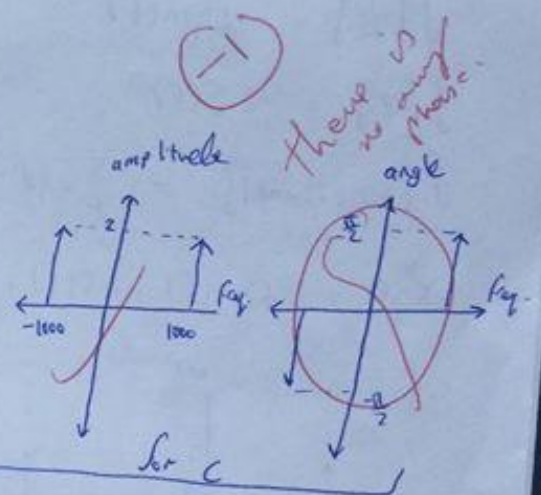 -1
there is
no any
phase.
amplitude
2
freq.
-1000
1000
angle
π/2
freq.
-π/2
for C